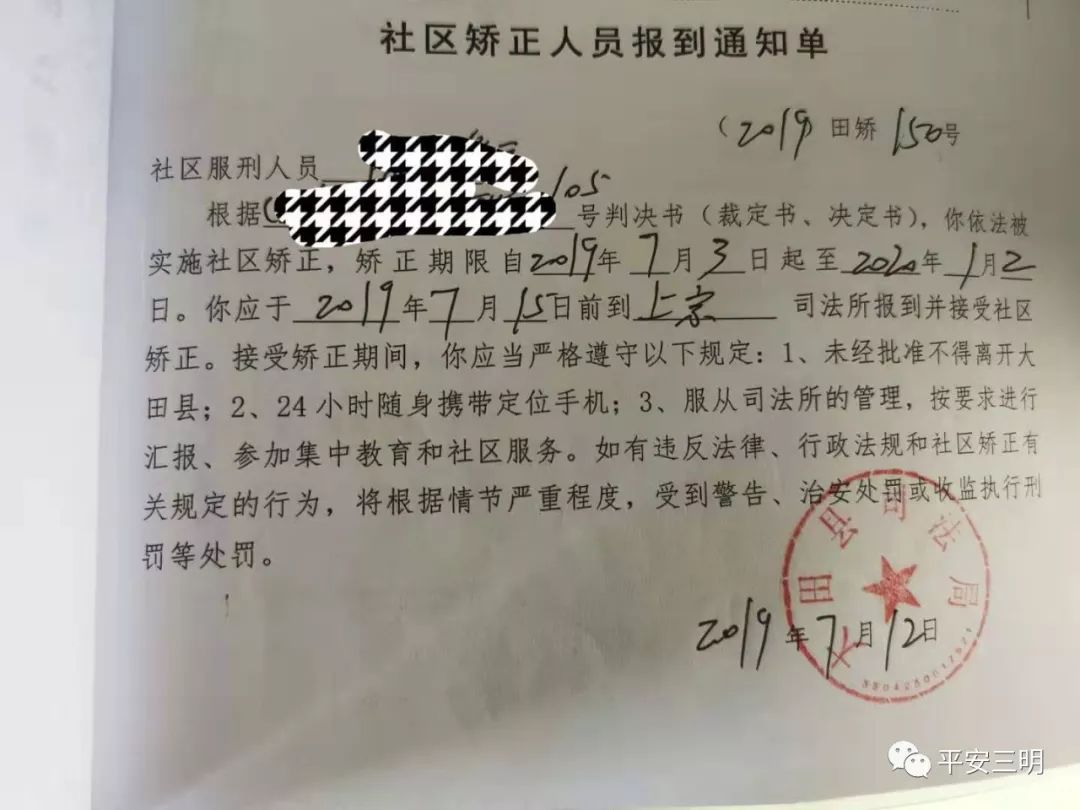 社区矫正人员报到通知单
（2019）田矫150号
社区服刑人员
根据 105号判决书（裁定书、决定书），你依法被
实施社区矫正，矫正期限自2019年7月3日起至2020年1月2
日。你应于2019年7月15日前到上京司法所报到并接受社区
矫正。接受矫正期间，你应当严格遵守以下规定：1、未经批准不得离开大
田县；2、24小时随身携带定位手机；3、服从司法所的管理，按要求进行
汇报、参加集中教育和社区服务。如有违反法律、行政法规和社区矫正有
关规定的行为，将根据情节严重程度，受到警告、治安处罚或收监执行刑
罚等处罚。
大田县司法局
2019年7月12日
平安三明